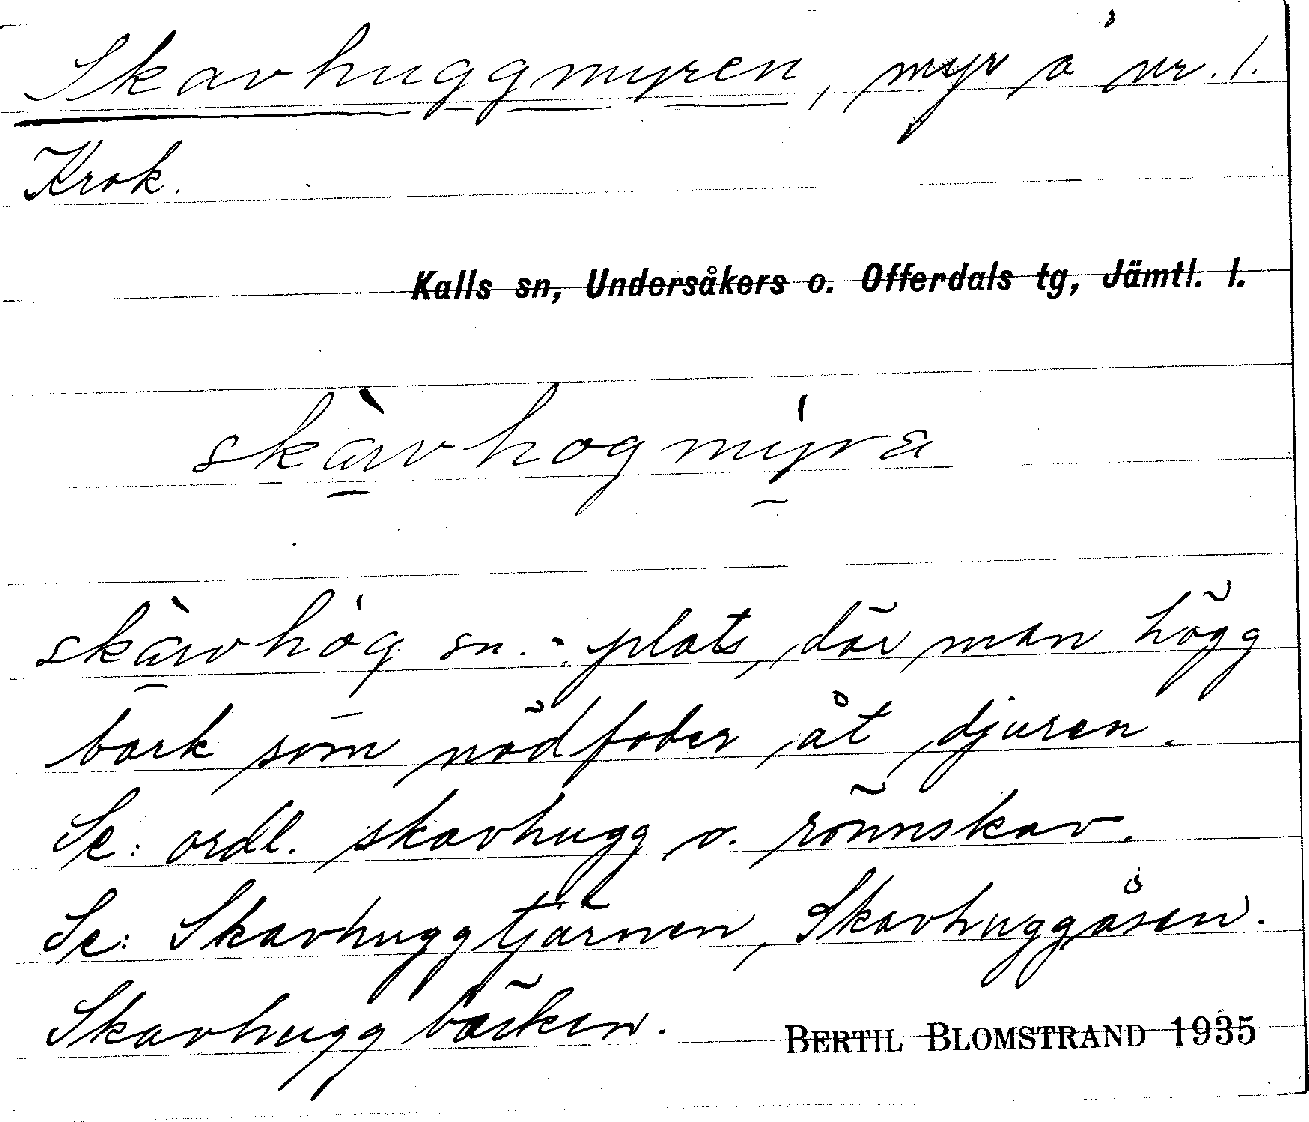 Skavhuggmyren, myr å nr. 1.
Krok.
Kalls sn, Undersåkers o. Offerdals tg, Jämtl. l.
skàvhogmýra
skàvhòg sn. -: plats, där man högg
bark som nödfoder åt djuren.
Se: ordl. skavhugg o. rönnskav.
Se: Skavhuggtjärnen, Skavhuggåsen.
Skavhuggbäcken.
BERTIL BLOMSTRAND 1935